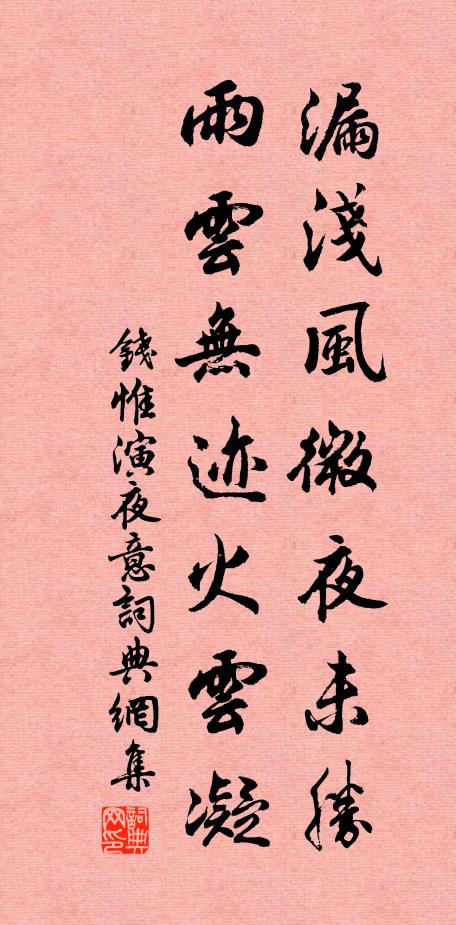 漏淺風微夜未勝
雨雲無迹火雲凝
錢惟演夜意詞典網集
詞典网印